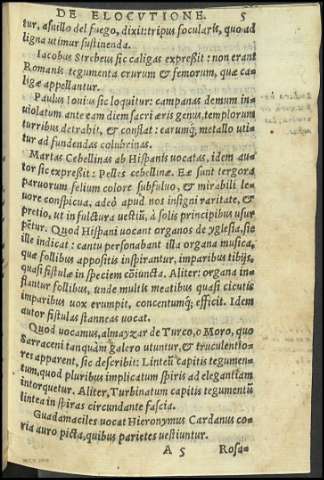 DE ELOCUTIONE. 5
tur, asnillo del fuego, dixit: tripus focularis, quo ad
ligna utimur sustinenda.
Iacobus Strebeus sic caligas expreßit: non erant
Romanis tegumenta crurum & femorum, quæ ca-
ligæ appellantur.
Paulus Iouius sic loquitur: campanas demum in
uiolatum ante eam diem sacri æris genus, templorum
turribus detrahit, & conflat: earumq́; metallo uti-
tur ad fundendas colubrinas.
Martas Cebellinas ab Hispanis uocatas, idem au-
tor sic expreßit: Pelles cebellinæ. Eæ sunt tergora
paruorum felium colore subfuluo, & mirabili le-
uore conspicua, adeò apud nos insigni raritate, &
pretio, ut in fulctura uestiũ, à solis principibus usur
pẽtur. Quod Hispani uocant organos de yglesia, sic
ille indicat: cantu personabant illa organa musica,
quæ follibus appositis inspirantur, imparibus tibijs,
quasi fistulæ in speciem cõiuncta. Aliter: organa in-
flantur follibus, unde multis meatibus quasi cicutis
imparibus uox erumpit, concentumq́; efficit. Idem
autor fistulas stanneas uocat.
Quod uocamus, almayzar de Turco, o Moro, quo
Sarraceni tanquàm galero utuntur, & truculentio-
res apparent, sic describit: Linteũ capitis tegumen-
tum, quod pluribus implicatum spiris ad elegantiam
intorquetur. Aliter, Turbinatum capitis tegumentũ
lintea in spiras circundante fascia.
Guadamaciles uocat Hieronymus Cardanus co-
ria auro picta, quibus parietes uestiuntur.
A 5 Rosa-